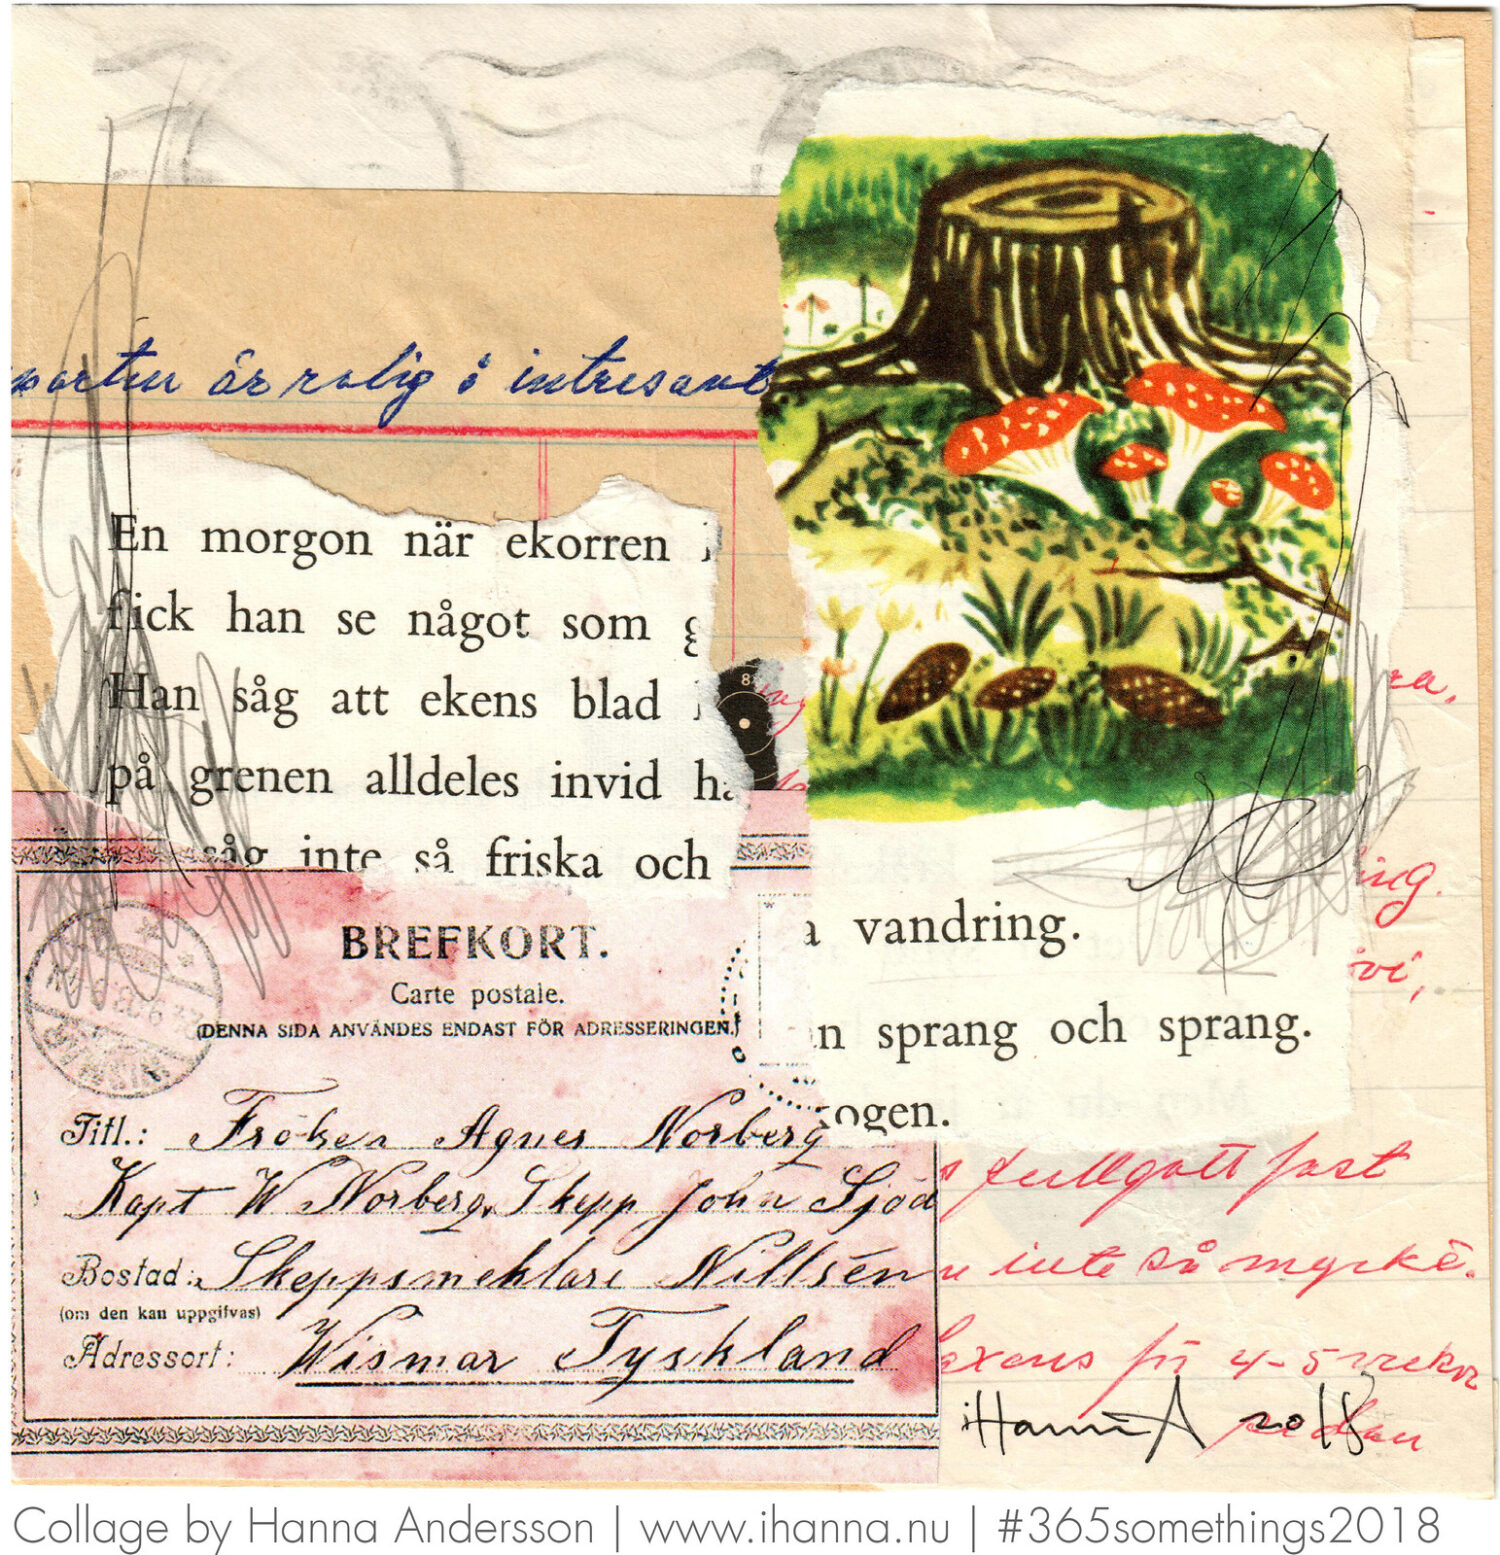 är rolig å intresant
En morgon när ekorren
fick han se något som
Han såg att ekens blad
på grenen alldeles invid
såg inte så friska och
8
a vandring.
n sprang och sprang.
kogen.
BREFKORT.
Carte postale.
(DENNA SIDA ANVÄNDES ENDAST FÖR ADRESSERINGEN.)
Titl.: Fröken Agnes Norberg
Kapt W Norberg, Skepp John Sjöd
Bostad: Skeppsmehlare Nillsén
(om den kan uppgifvas)
Adressort: Wismar Tyskland
ra,
ing.
vi,
fullgott fast
inte så mycké.
4-5 veckor
sedan
iHannA 2018
Collage by Hanna Andersson | www.ihanna.nu | #365somethings2018